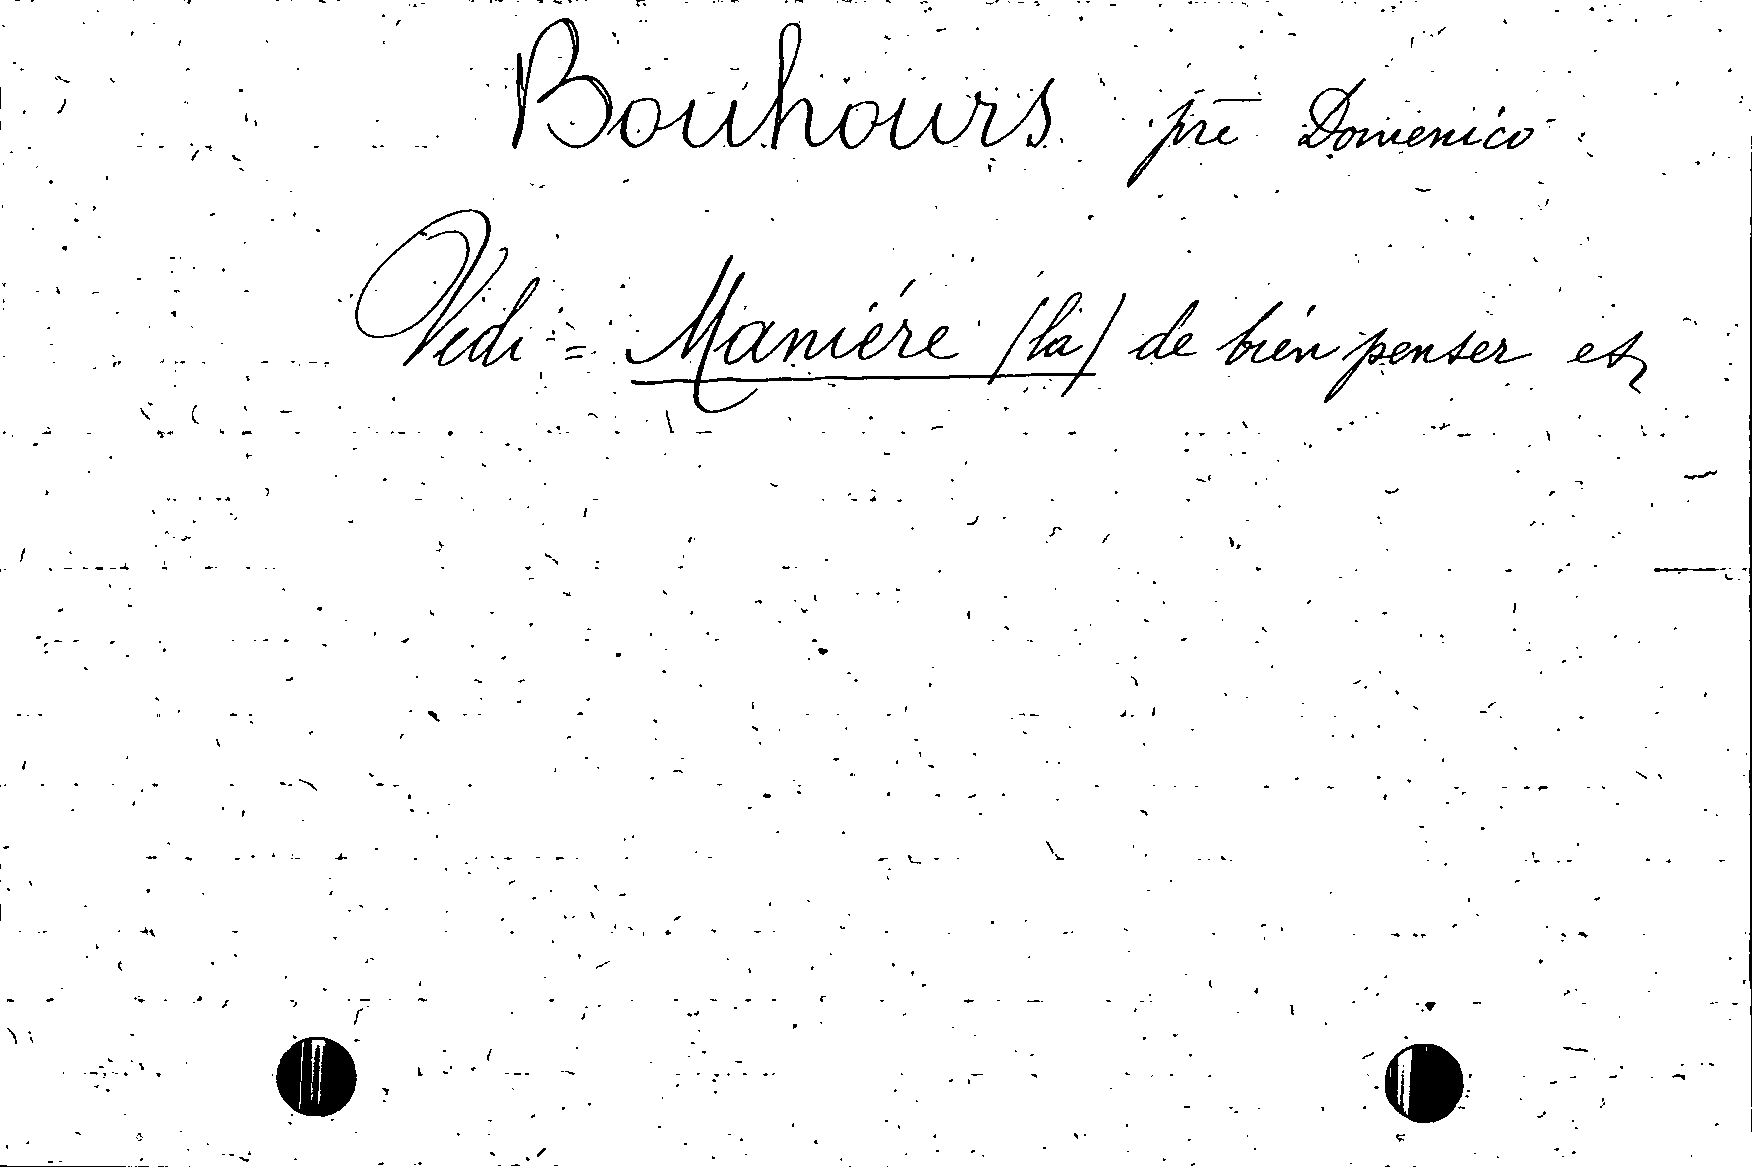 Bouhours pre Domenico
Vedi = Maniére (la) de bien penser et